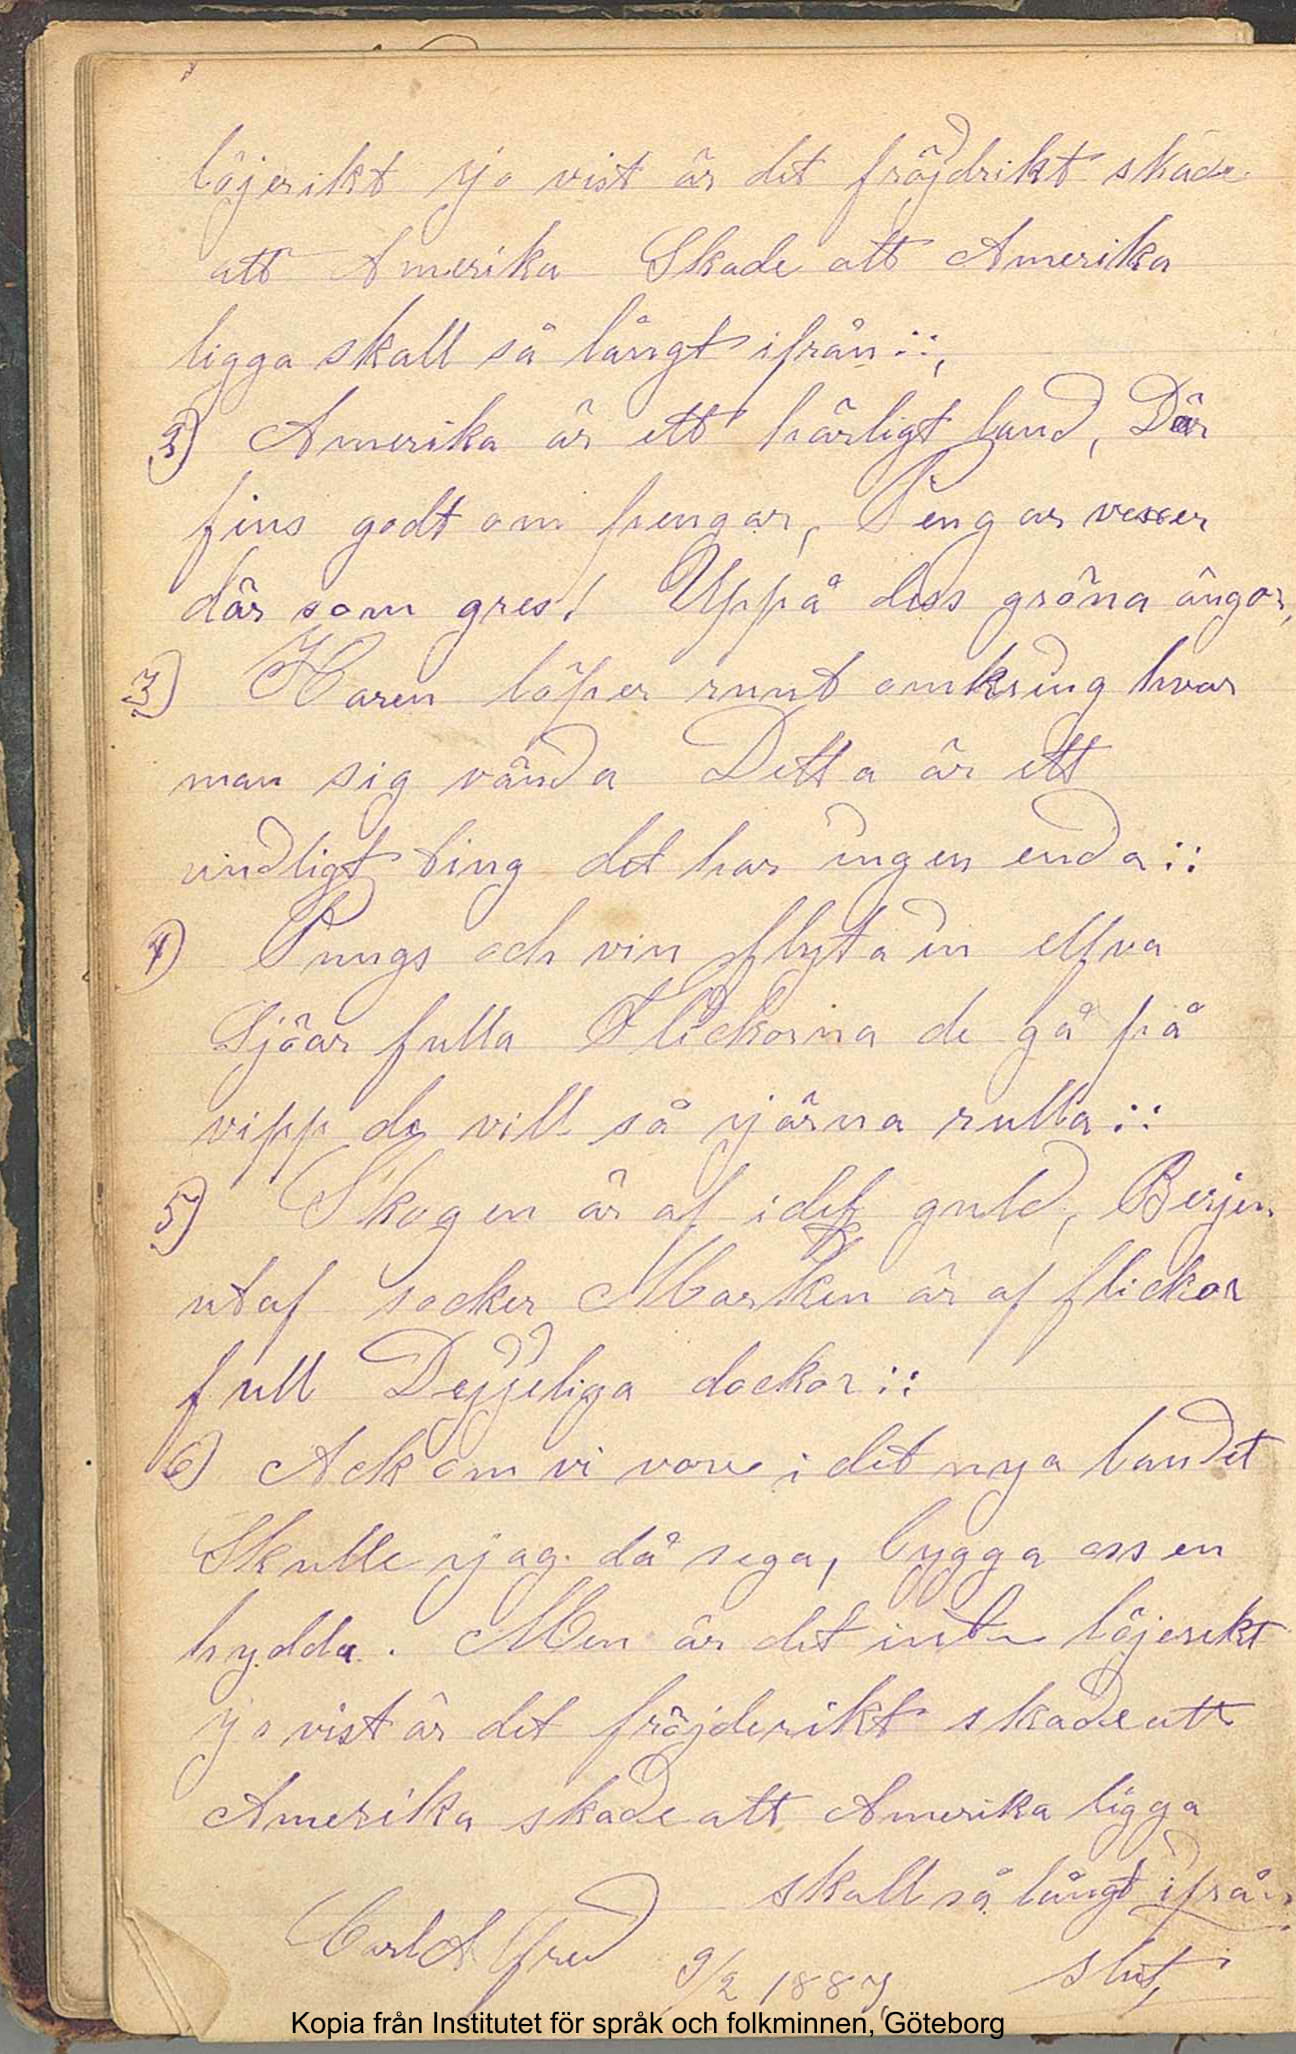 löjerikt jo vist är det fröjdrikt skade
att Amerika Skade att Amerika
ligga skall så långt ifrån ::,
2) Amerika är ett härligt land, Där
fins godt om pengar, Pengar vexer
där som gres! Uppå dess gröna ängar,
3) Haren löper runt omkring hvar
man sig vända Detta är ett
undligt ting det har ingen enda ::
4) Pungs och vin flyta in elfva
Sjöar fulla Flickorna de gå på
vipp de vill så järna rulla ::
5) Skogen är af idel guld, Berjen
utaf socker Marken är af flickor
full Dejjeliga dockor ::
6) Ack om vi vore i det nya landet
Skulle jag då sega, bygga oss en
hydda. Men är det inte löjerikt
jo vist är det fröjderikt skade att
Amerika skade att Amerika ligga
skall så långt ifrån
Carl Alfred 9/2 1887 slut,
Kopia från Institutet för språk och folkminnen, Göteborg